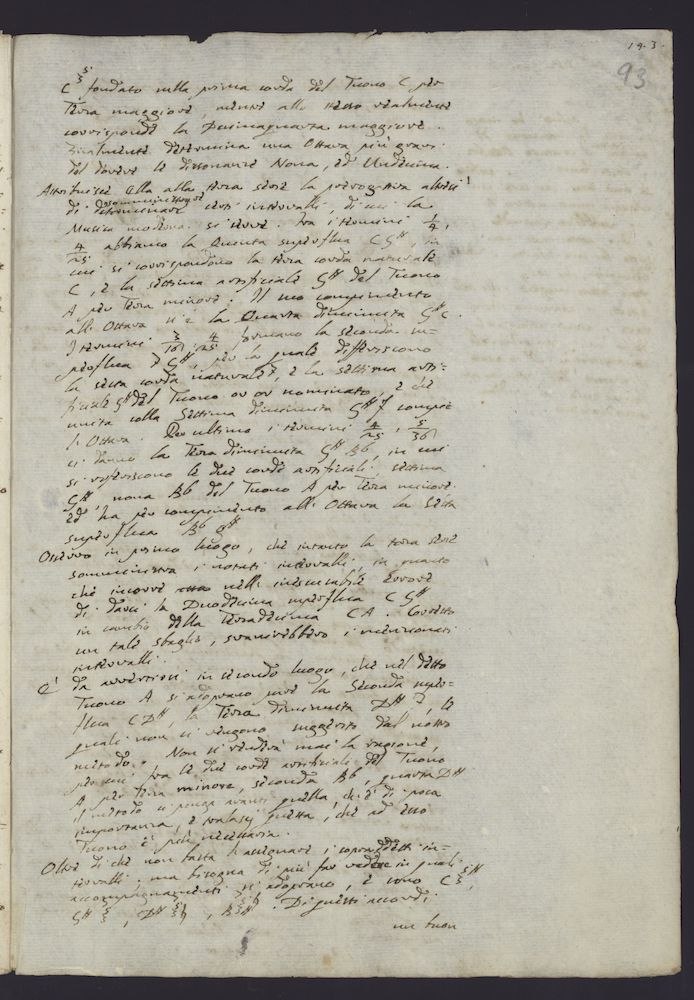 193.
93
C 5/3 fondato sulla prima corda del Tuono C per
Terza maggiore, mentre alle stesse realmente
corrisponde la Decimaquarta maggiore.
Finalmente determina una Ottava più gravi
del dovere le dissonanze Nona, ed Undecima.
Attribuisce alla alla terza serie la prerogativa altresì
di somministrare certi intervalli, di cui la
Musica moderna si serve. Fra i termini 1/4,
4/25 abbiamo la Quinta superflua C G#, in
cui si corrispondono la terza corda naturale
C, e la settima artificiale G# del Tuono
A per Terza minore. Il suo compimento
alla Ottava si è la Quarta diminuita G# C.
I termini 3/16, 4/25 formano la seconda su-
perflua F G#, per la quale differiscono
la sesta corda naturale F, e la settima arti-
ficiale G# del Tuono or or nominato, e che
unita colla Settima diminuita G# F compie
l'Ottava. Per ultimo i termini 4/25, 5/36
ci danno la Terza diminuita G# Bb, in cui
si riferiscono le due corde artificiali, settima
G#, nona Bb del Tuono A per Terza minore
ed ha per compimento alla Ottava la Sesta
superflua Bb G#
Osservo in primo luogo, che intanto la terza serie
somministra i notati intervalli, in quanto
che incorre nell' inescusabile errore
di darci la Duodecima superflua C G#
in cambio della Terzadecima C A. Corretto
un tale sbaglio, svanirebbero i menzionati
intervalli.
È da avvertirsi in secondo luogo, che nel detto
Tuono A si adoprano pure la Seconda super-
flua C D#, la Terza diminuita D# F, le
quali non ci vengono suggerite dal nostro
metodo. Non si renderà mai la ragione,
per cui fra le due corde artificiali del Tuono
A per Terza minore, seconda Bb, quarta D#
il metodo ci ponga avanti quella, che è di poca
importanza, e tralasci questa, che ad esso
Tuono è più necessaria.
Oltre di che non basta l'assegnare i sopraddetti in-
tervalli, ma bisogna di più far vedere in quali
accompagnamenti si adoprano, e sono C
G#, D#, B. Di questi accordi
un buon